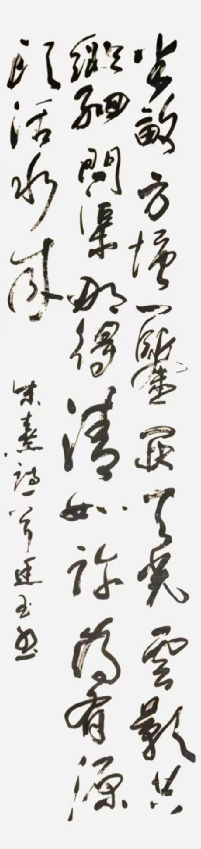 半畝方塘一鑒開天光雲影共
徘徊問渠那得清如許為有源
頭活水來
朱熹詩